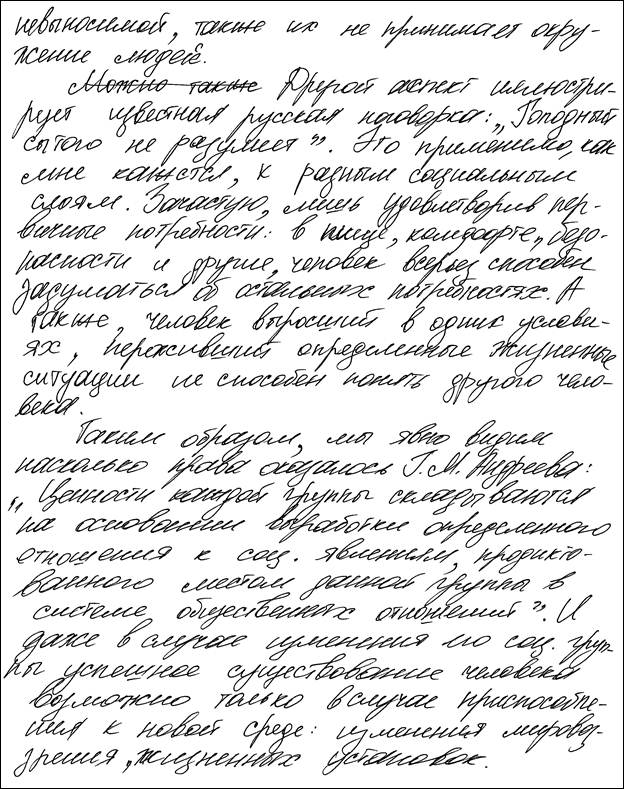 невыносимой, также их не принимает окру-
жение людей.
Можно также Другой аспект иллюстри-
рует известная русская поговорка: „Голодный
сытого не разумеет”. Это применимо, как
мне кажется, к разным социальным
слоям. Зачастую, лишь удовлетворив пер-
вичные потребности: в пище, комфорте, безо-
пасности и другие, человек всерьез способен
задуматься об остальных потребностях. А
также, человек выросший в одних услови-
ях, переживший определенные жизненные
ситуации не способен понять другого чело-
века.
Таким образом, мы явно видим
насколько права оказалось Г. М. Андреева:
„Ценности каждой группы складываются
на основании выработки определенного
отношения к соц. явлениям, продикто-
ванного местом данной группы в
системе общественных отношений”. И
даже в случае изменения по соц. груп-
пы успешное существование человека
возможно только в случае приспособле-
ния к новой среде: изменения мировоз-
зрения, жизненных установок.